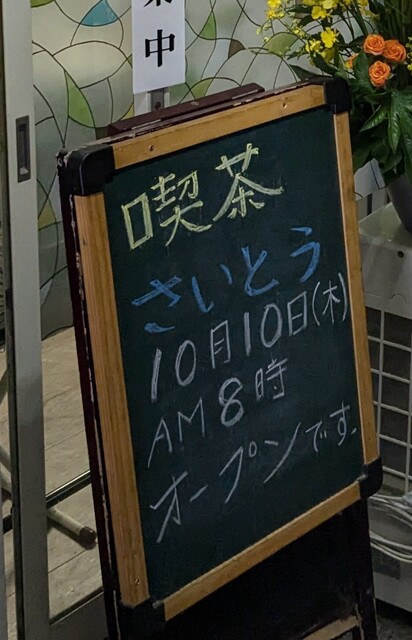 業中
喫茶
さいとう
10月10日(木)
AM8時
オープンです。